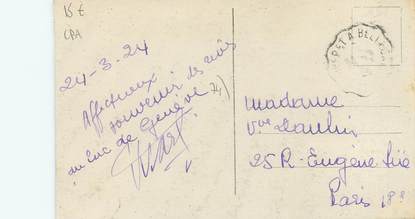 15 €
CPA
24-3-24
Affectueux
souvenir des rives
du Lac de Genève
74)
Madame
Vve
25 R. Eugène Süe
Paris 18e